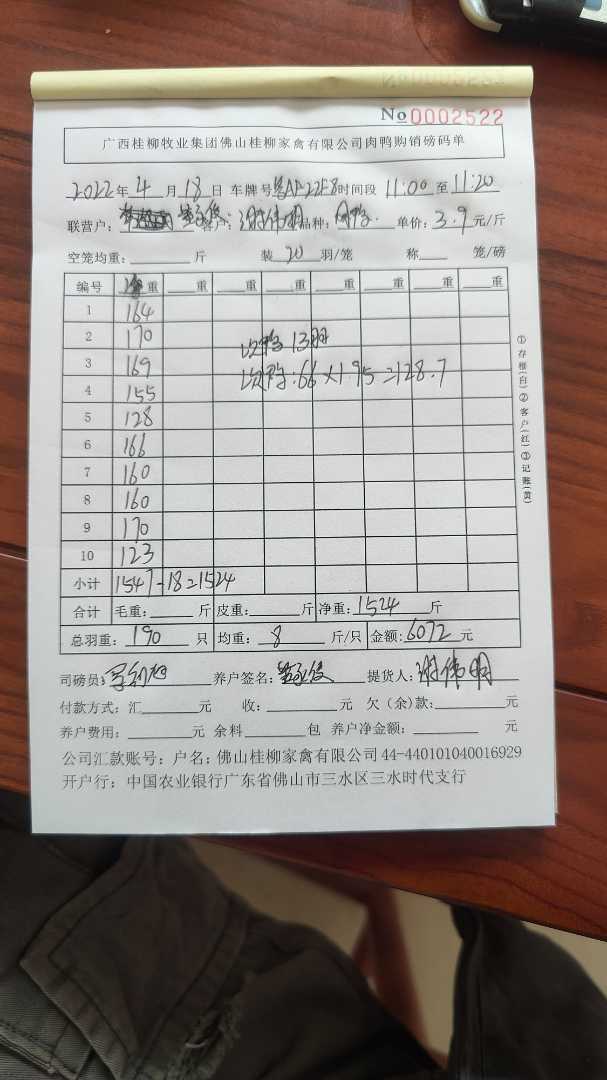 No 0002522
广西桂柳牧业集团佛山桂柳家禽有限公司肉鸭购销磅码单
2022年 4 月 18 日 车牌号 时间段 11:00 至 11:20
联营户: 客户: 谢伟明 品种: 单价: 3.9 元/斤
空笼均重: 斤 装 20 羽/笼 称 笼/磅
编号 重 重 重 重 重 重 重 重
1 164
2 170
次鸭 13羽
3 169
次鸭:66×1.95=128.7
4 155
5 128
6 166
7 160
8 160
9 170
10 123
小计 1547-18=1524
合计 毛重: 斤 皮重: 斤 净重: 1524 斤
总羽重: 190 只 均重: 8 斤/只 金额: 6072 元
司磅员: 养户签名: 提货人: 谢伟明
付款方式: 汇 元 收: 元 欠(余)款: 元
养户费用: 元 余料 包 养户净金额: 元
公司汇款账号: 户名: 佛山桂柳家禽有限公司 44-440101040016929
开户行: 中国农业银行广东省佛山市三水区三水时代支行
①存根(白)②客户(红)③记账(黄)